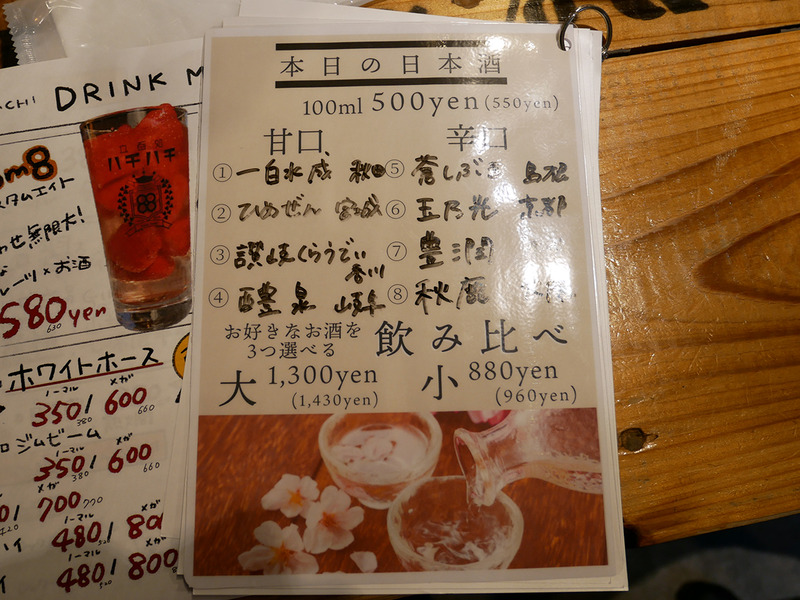 DRINK M
タムエイト
わせ無限大!
ルーツ×お酒
580yen
630
ホワイトホース
ノーマル メガ
350/600
380 660
ジムビーム
ノーマル メガ
350/600
380 660
メガ
700 770
ノーマル メガ
480/
ノーマル メガ
480/800
ハチハチ
88
本日の日本酒
100ml 500yen(550yen)
甘口
①一白水成 秋田
②ひめぜん 宮城
③讃岐くらうでぃ
香川
④醴泉 岐阜
辛口
⑥玉乃光 京都
⑦豊潤
⑧秋鹿
お好きなお酒を
3つ選べる
飲み比べ
大 1,300yen
(1,430yen)
小 880yen
(960yen)